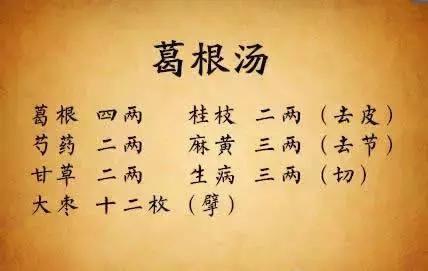 葛根汤
葛根 四两 桂枝 二两（去皮）
芍药 二两 麻黄 三两（去节）
甘草 二两 生病 三两（切）
大枣 十二枚（擘）